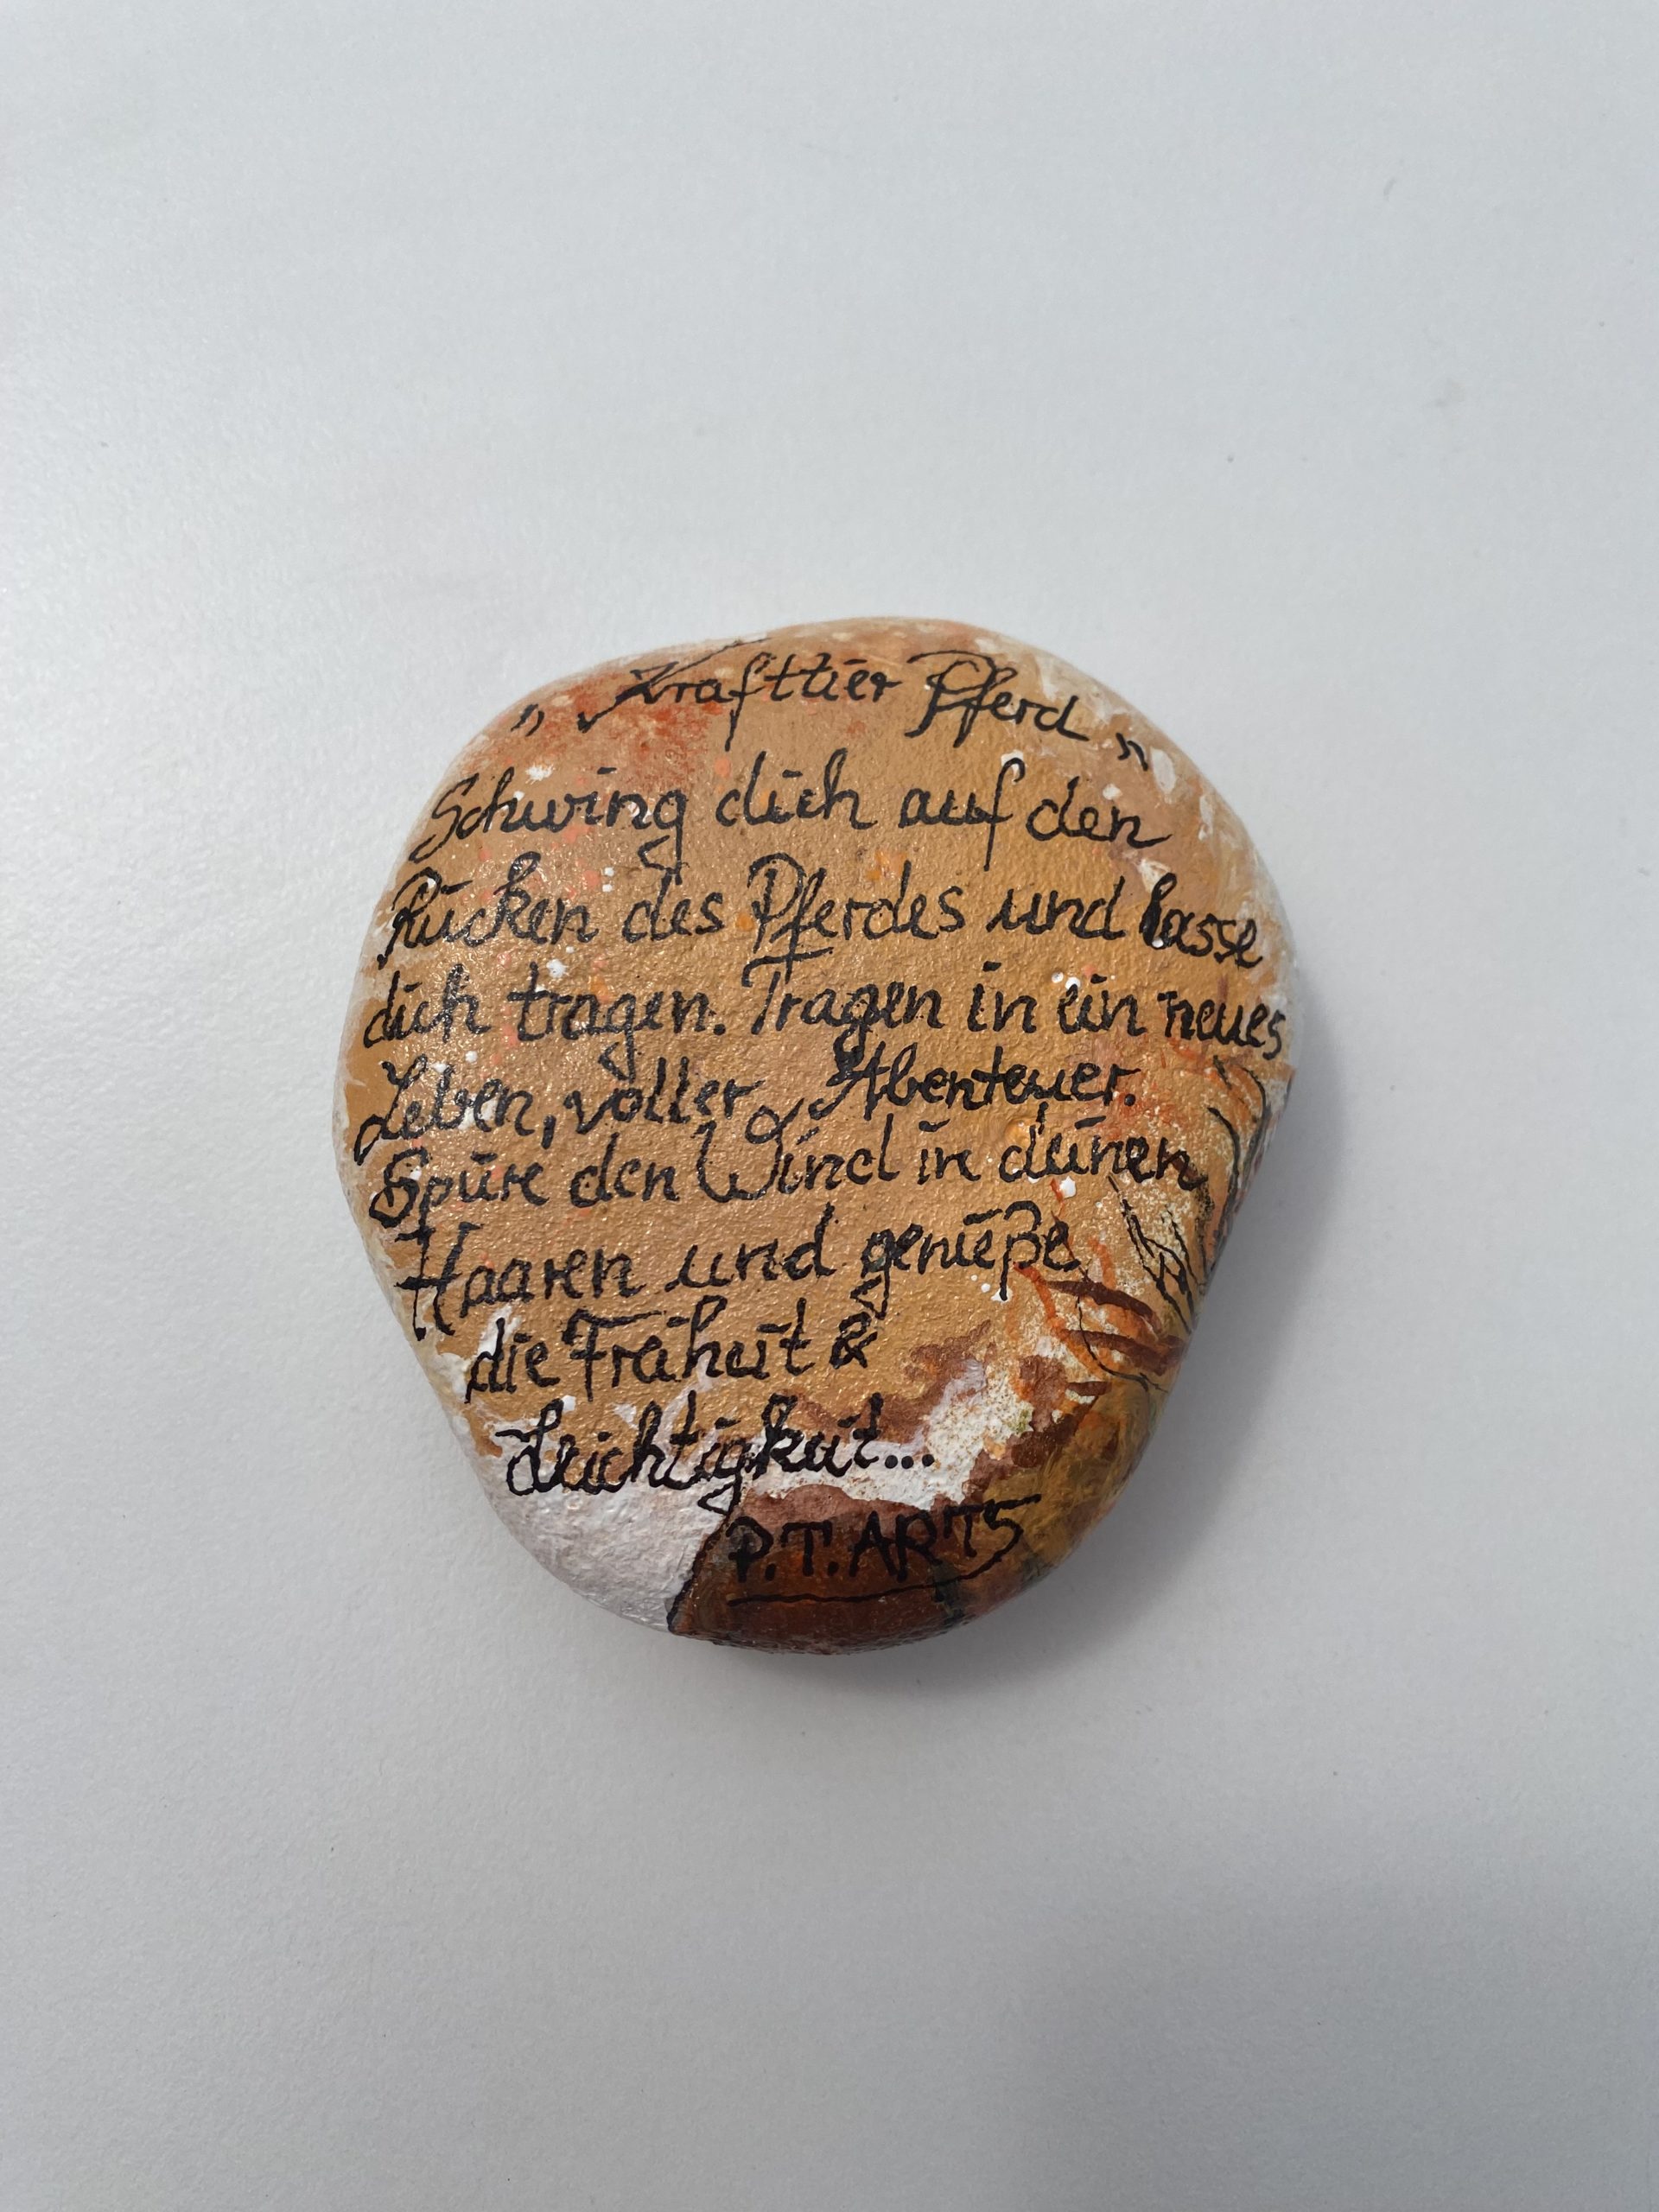 „Krafttier Pferd„
Schwing dich auf den
Rücken des Pferdes und lasse
dich tragen. Tragen in ein neues
Leben, voller Abenteuer.
Spüre den Wind in deinen
Haaren und genieße
die Freiheit &
Leichtigkeit...
P.T.ARTS